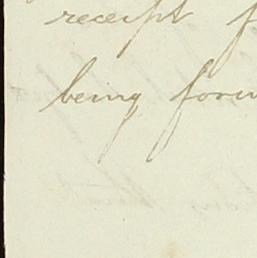 receipt f
being forw